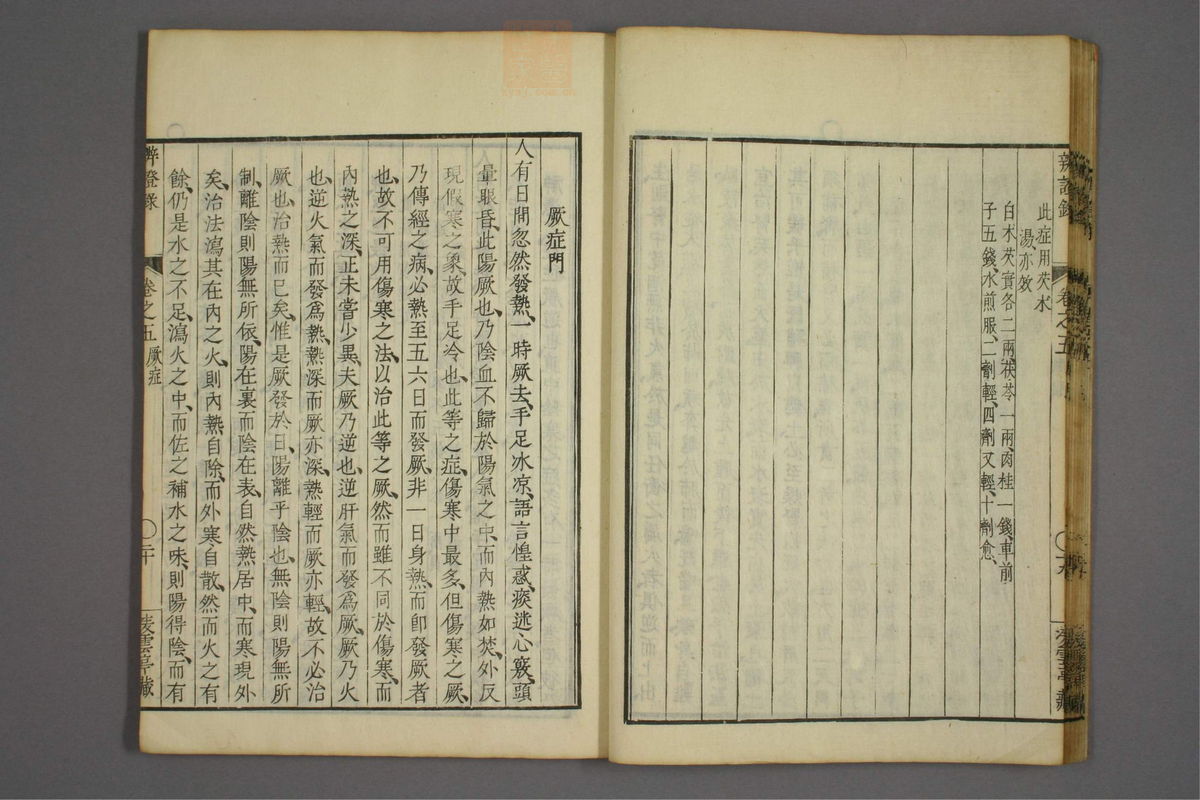 此症用芡水
湯亦效
白术芡實各二兩茯苓一兩肉桂一錢車前
子五錢水煎服二劑輕四劑又輕十劑愈
卷之五
厥症門
人有日間忽然發熱一時厥去手足冰凉語言惶惑痰迷心竅頭
暈眼昏此陽厥也乃陰血不歸於陽氣之中而內熱如焚外反
現假寒之象故手足冷也此等之症傷寒中最多但傷寒之厥
乃傳經之病必熱至五六日而發厥非一日身熱而卽發厥者
也故不可用傷寒之法以治此等之厥然而雖不同於傷寒而
內熱之深正未嘗少異夫厥乃逆也逆肝氣而發爲厥厥乃火
也逆火氣而發爲熱熱深而厥亦深熱輕而厥亦輕故不必治
厥也治熱而已矣惟是厥發於日陽離乎陰也無陰則陽無所
制離陰則陽無所依陽在裏而陰在表自然熱居中而寒現外
矣治法瀉其在內之火則內熱自除而外寒自散然而火之有
餘仍是水之不足瀉火之中而佐之補水之味則陽得陰而有
辨證錄 卷之五厥症 二十 凌雲亭藏